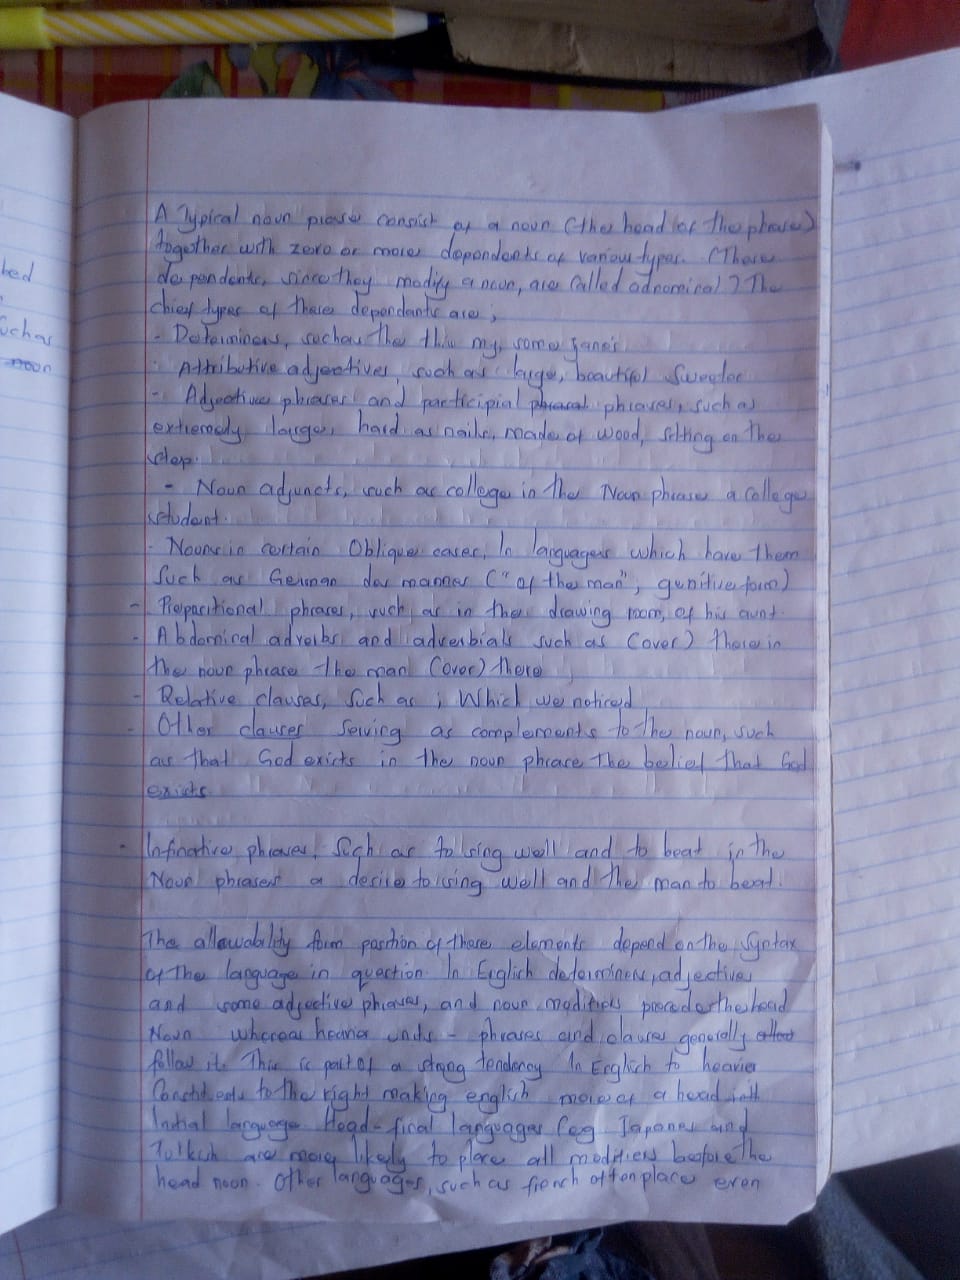 A Typical noun phrase consist of a noun (the head of the phrase)
together with zero or more dependents of various types. (These
dependents, since they modify a noun, are called adnominal) The
chief types of these dependants are;
- Determiners, such as the this my, some Jane's
- Attributive adjectives, such as large, beautiful Sweeter
- Adjective phrases and participial phrasal phrases, such as
extremely large, hard as nails, made of wood, sitting on the
step.
- Noun adjuncts, such as college in the Noun phrase a college
student.
- Nouns in certain Oblique cases, In languages which have them
Such as German des mannes ("of the man"; genitive form)
- Prepositional phrases, such as in the drawing room, of his aunt.
- Abdornical adverbs and adverbials such as (over) there in
the noun phrase the man (over) there
- Relative clauses, Such as ; Which we noticed
- Other clauses Serving as complements to the noun, such
as that God exists in the noun phrase the belief that God
exists
- Infinative phrases, Such as to sing well and to beat in the
Noun phrases a desire to sing well and the man to beat.
The allowability form position of these elements depend on the Syntax
of the language in question. In English determiners, adjective
and some adjective phrases, and noun modifiers precede the head
Noun whereas heavier units - phrases and clauses generally
follow it. This is part of a strong tendency In English to heavier
Constituents to the right making english more of a head
Initial language. Head-final languages (eg Japanes and
Tulkish are more likely to place all modifiers beofore the
head noun. Other languages, such as french often place even
bed
such as
noon